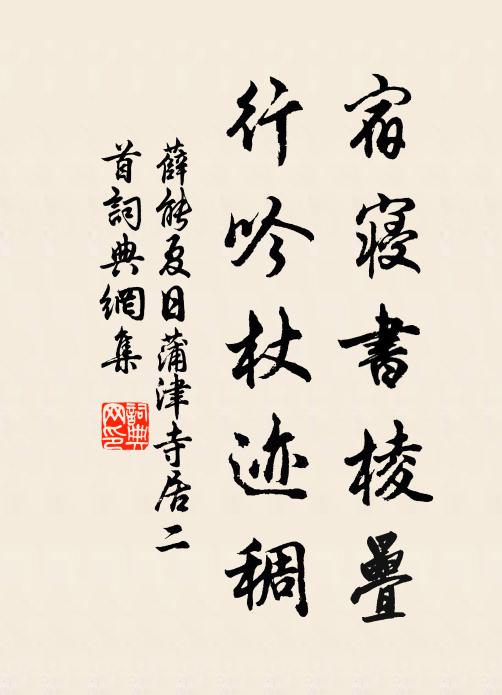 宿寝書棱疊
行吟杖迹稠
薛能夏日蒲津寺居二
首詞典網集
詞典
网印